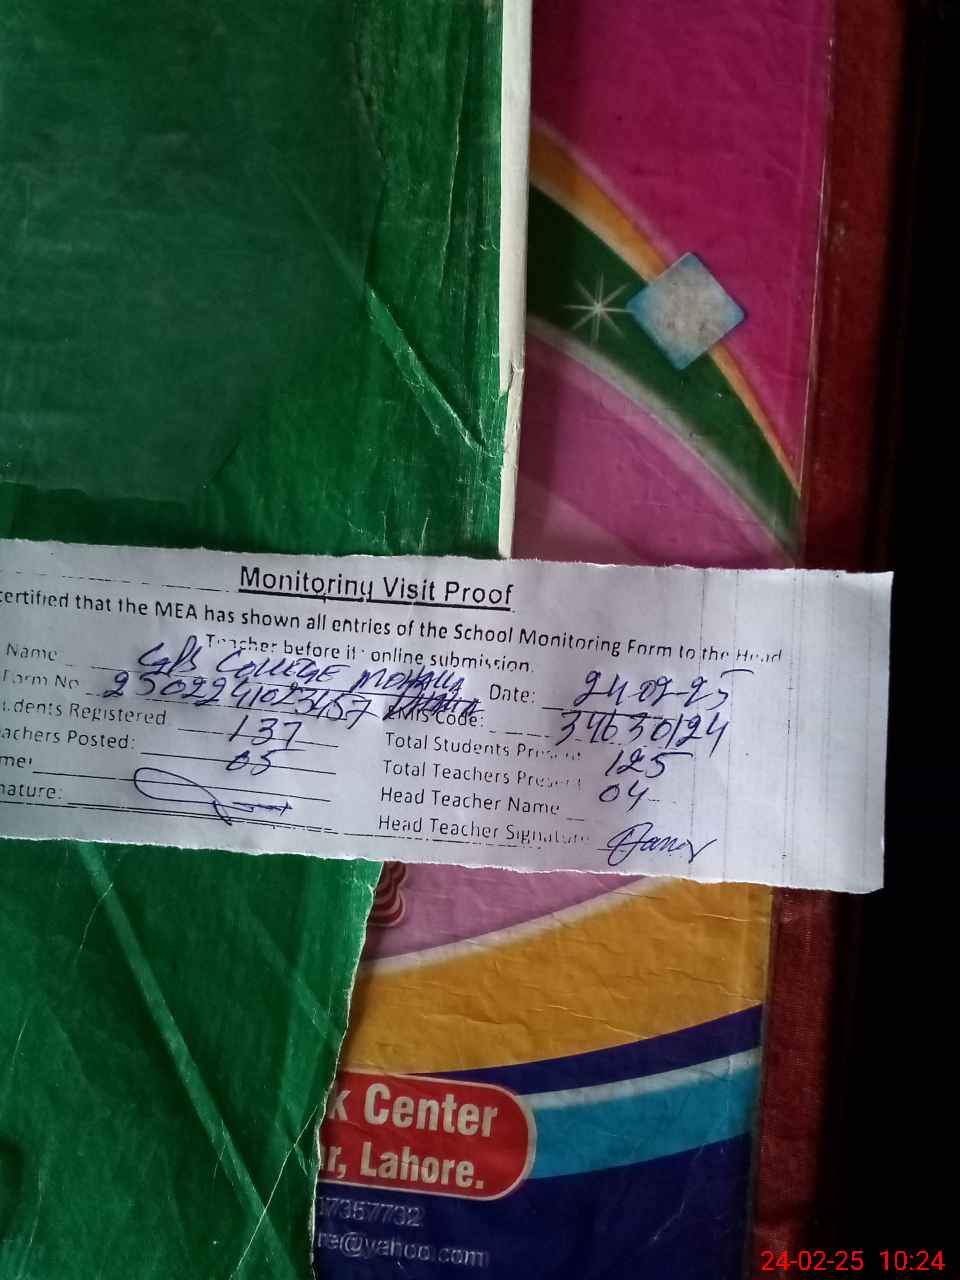 Monitoring Visit Proof
certified that the MEA has shown all entries of the School Monitoring Form to the Head
Teacher before its online submission.
Name GPS COLLEGE MOHALLA Date: 24-02-25
Form No 2502241023457 EMIS Code: 34630124
udents Registered 137 Total Students Present 125
achers Posted: 05 Total Teachers Present 04
me: Head Teacher Name
nature: Head Teacher Signature
k Center
r, Lahore.
7357732
ne@yahoo.com
24-02-25 10:24